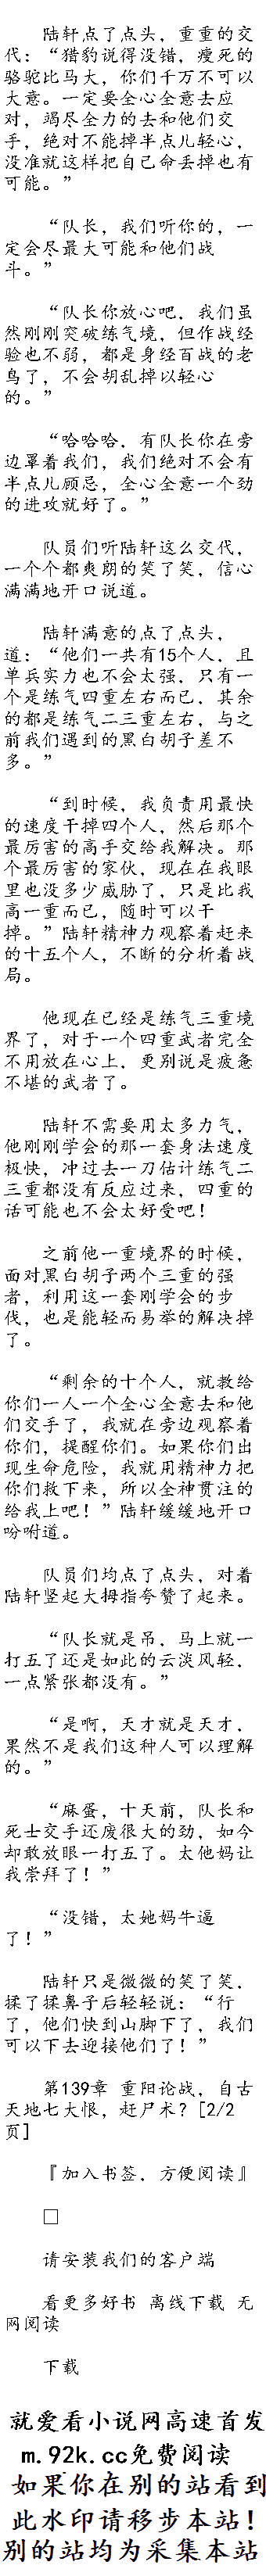 陆轩点了点头，重重的交
代：“猎豹说得没错，瘦死的
骆驼比马大，你们千万不可以
大意。一定要全心全意去应
对，竭尽全力的去和他们交
手，绝对不能掉半点儿轻心，
没准就这样把自己命丢掉也有
可能。”
“队长，我们听你的，一
定会尽最大可能和他们战
斗。”
“队长你放心吧，我们虽
然刚刚突破练气境，但作战经
验也不弱，都是身经百战的老
鸟了，不会胡乱掉以轻心
的。”
“哈哈哈，有队长你在旁
边罩着我们，我们绝对不会有
半点儿顾忌，全心全意一个劲
的进攻就好了。”
队员们听陆轩这么交代，
一个个都爽朗的笑了笑，信心
满满地开口说道。
陆轩满意的点了点头，
道：“他们一共有15个人，且
单兵实力也不会太强，只有一
个是练气四重左右而已，其余
的都是练气二三重左右，与之
前我们遇到的黑白胡子差不
多。”
“到时候，我负责用最快
的速度干掉四个人，然后那个
最厉害的高手交给我解决。那
个最厉害的家伙，现在在我眼
里也没多少威胁了，只是比我
高一重而已，随时可以干
掉。”陆轩精神力观察着赶来
的十五个人，不断的分析着战
局。
他现在已经是练气三重境
界了，对于一个四重武者完全
不用放在心上，更别说是疲惫
不堪的武者了。
陆轩不需要用太多力气，
他刚刚学会的那一套身法速度
极快，冲过去一刀估计练气二
三重都没有反应过来，四重的
话可能也不会太好受吧！
之前他一重境界的时候，
面对黑白胡子两个三重的强
者，利用这一套刚学会的步
伐，也是能轻而易举的解决掉
了。
“剩余的十个人，就教给
你们一人一个全心全意去和他
们交手了，我就在旁边观察着
你们，提醒你们。如果你们出
现生命危险，我就用精神力把
你们救下来，所以全神贯注的
给我上吧！”陆轩缓缓地开口
吩咐道。
队员们均点了点头，对着
陆轩竖起大拇指夸赞了起来。
“队长就是吊，马上就一
打五了还是如此的云淡风轻，
一点紧张都没有。”
“是啊，天才就是天才，
果然不是我们这种人可以理解
的。”
“麻蛋，十天前，队长和
死士交手还废很大的劲，如今
却敢放眼一打五了。太他妈让
我崇拜了！”
“没错，太她妈牛逼
了！”
陆轩只是微微的笑了笑，
揉了揉鼻子后轻轻说：“行
了，他们快到山脚下了，我们
可以下去迎接他们了！”
第139章 重阳论战，自古
天地七大恨，赶尸术？[2/2
页]
『加入书签，方便阅读』
□
请安装我们的客户端
看更多好书 离线下载 无
网阅读
下载
就爱看小说网高速首发
m.92k.cc免费阅读
如果你在别的站看到
此水印请移步本站！
别的站均为采集本站